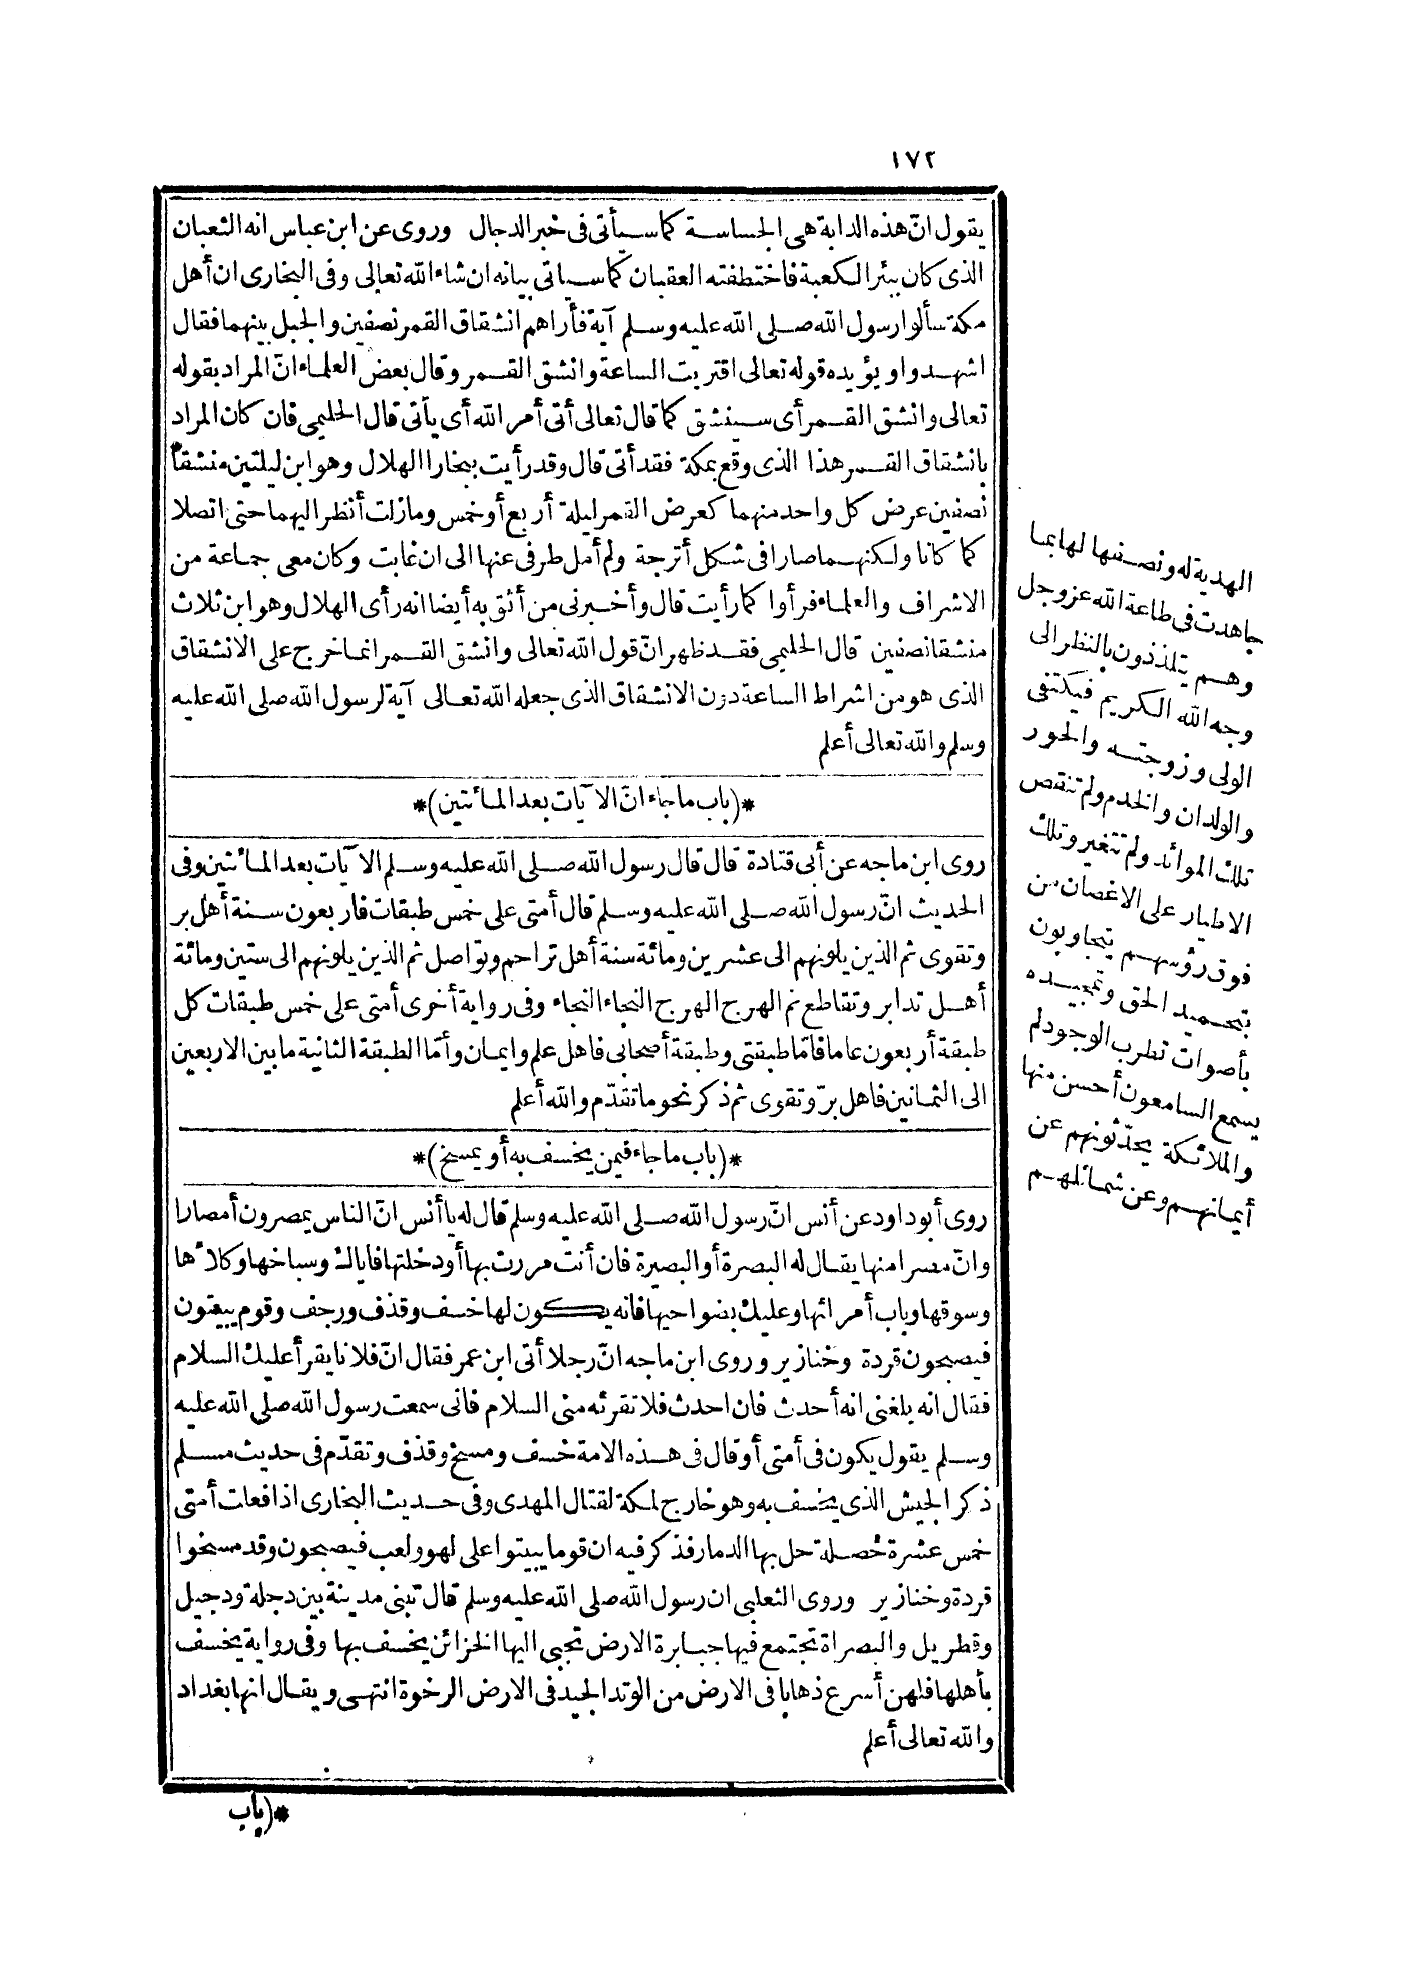 ١٧٢
يقول انّ هذه الدابة هى الجساسة كما سيأتى فى خبر الدجال وروى عن ابن عباس انه الثعبان
الذى كان ببئر الكعبة فاختطفته العقبان كما سياتى بيانه ان شاء الله تعالى وفى البخارى ان أهل
مكة سألوا رسول الله صلى الله عليه وسلم آية فأراهم انشقاق القمر نصفين والجبل بينهما فقال
اشهدوا ويؤيده قوله تعالى اقتربت الساعة وانشق القمر وقال بعض العلماء انّ المراد بقوله
تعالى وانشق القمر أى سينشق كما قال تعالى أتى أمر الله أى يأتى قال الحليمى فان كان المراد
بانشقاق القمر هذا الذى وقع بمكة فقد أتى قال وقد رأيت ببخارا الهلال وهو ابن ليلتين منشقاً
نصفين عرض كل واحد منهما كعرض القمر ليلة أربع أو خمس ومازلت أنظر اليهما حتى اتصلا
كما كانا ولكنهما صارا فى شكل أترجة ولم أمل طرفى عنها الى ان غابت وكان معى جماعة من
الاشراف والعلماء فرأوا كما رأيت قال وأخبرنى من أثق به أيضا انه رأى الهلال وهو ابن ثلاث
منشقا نصفين قال الحليمى فقد ظهر انّ قول الله تعالى وانشق القمر انما خرج على الانشقاق
الذى هو من اشراط الساعة دون الانشقاق الذى جعله الله تعالى آية لرسول الله صلى الله عليه
وسلم والله تعالى أعلم
*(باب ما جاء انّ الا يات بعد المائتين)*
روى ابن ماجه عن أبى قتادة قال قال رسول الله صلى الله عليه وسلم الا يات بعد المائتين وفى
الحديث انّ رسول الله صلى الله عليه وسلم قال أمتى على خمس طبقات فاربعون سنة أهل بر
وتقوى ثم الذين يلونهم الى عشرين ومائة سنة أهل تراحم وتواصل ثم الذين يلونهم الى ستين ومائة
أهل تدابر وتقاطع ثم الهرج الهرج النجاء النجاء وفى رواية أخرى أمتى على خمس طبقات كل
طبقة أربعون عاما فاتما طبقتى وطبقة أصحابى فاهل علم وايمان وأمّا الطبقة الثانية ما بين الاربعين
الى الثمانين فاهل برّ وتقوى ثم ذكر نحو ما تقدّم والله أعلم
*(باب ما جاء فيمن يخسف به أو يمسخ)*
روى أبو داود عن أنس انّ رسول الله صلى الله عليه وسلم قال له يا أنس انّ الناس يمصرون أمصارا
وانّ مصرا منها يقال له البصرة أو البصيرة فان أنت مررت بها أو دخلتها فاياك وسباخها وكلاءها
وسوقها وباب أمرائها وعليك بضواحيها فانه يكون لها خسف وقذف ورجف وقوم يبيتون
فيصبحون قردة وخنازير وروى ابن ماجه انّ رجلا أتى ابن عمر فقال انّ فلانا يقرأ عليك السلام
فقال انه بلغنى انه أحدث فان احدث فلا تقرئه منى السلام فانى سمعت رسول الله صلى الله عليه
وسلم يقول يكون فى أمتى أو قال فى هذه الامة خسف ومسخ وقذف وتقدّم فى حديث مسلم
ذكر الجيش الذى يخسف به وهو خارج لمكة لقتال المهدى وفى حديث البخارى اذا فعلت أمتى
خمس عشرة خصلة حل بها الدمار فذكر فيه ان قوما يبيتوا على لهو ولعب فيصبحون وقد مسخوا
قردة وخنازير وروى الثعلبى ان رسول الله صلى الله عليه وسلم قال تبنى مدينة بين دجلة ودجيل
وقطربل والبصراة تجتمع فيها جبابرة الارض تجبى اليها الخزائن يخسف بها وفى رواية يخسف
بأهلها فلهن أسرع ذهابا فى الارض من الوتد الجيد فى الارض الرخوة انتهى ويقال انها بغداد
والله تعالى أعلم
*(باب
الهدية له ونصفها لها بما
جاهدت فى طاعة الله عز وجل
وهم يتلذذون بالنظر الى
وجه الله الكريم فيكتفى
الولى وزوجته والحور
والولدان والخدم ولم تنقص
تلك الموائد ولم تتغير وتلك
الاطيار على الاغصان من
فوق رؤسهم يتجاوبون
بتحميد الحق وتمجيده
بأصوات تطرب الوجود لم
يسمع السامعون أحسن منها
والملائكة يحدّثونهم عن
أيمانهم وعن شمائلهم